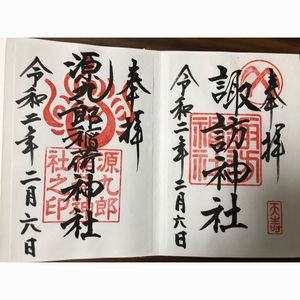 奉拝
諏訪神社
令和二年二月六日
奉拝
源九郎稲荷神社
令和二年二月六日
源九郎
社之印